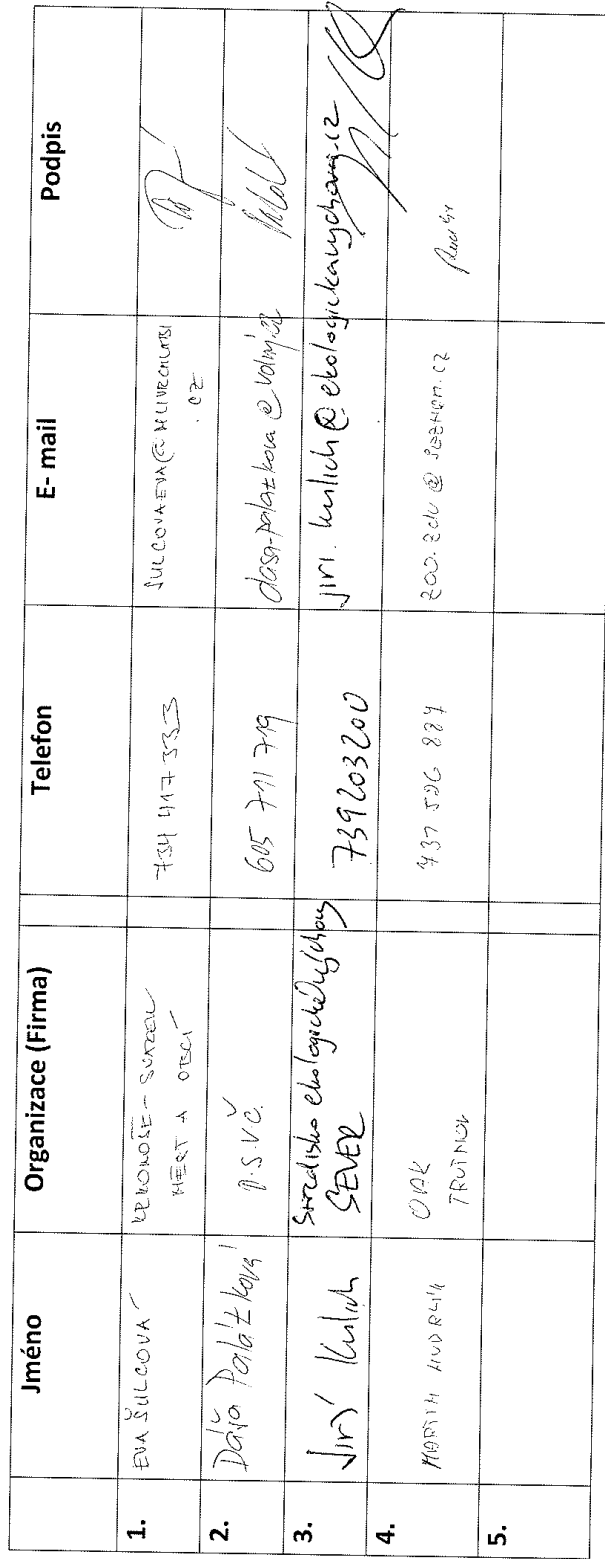 Jméno Organizace (Firma) Telefon E- mail Podpis
1. EVA ŠULCOVÁ KRKONOŠE – SVAZEK MĚST A OBCÍ 734 417 333
2. Dáša Palátková 605 711 719 dasa-palatkova@volny.cz
3. Jiří Kulich Středisko ekologické výchovy SEVER 739203200 jiri.kulich@ekologickavychova.cz
4. MARTIN HUDRLÍK TRUTNOV
5.